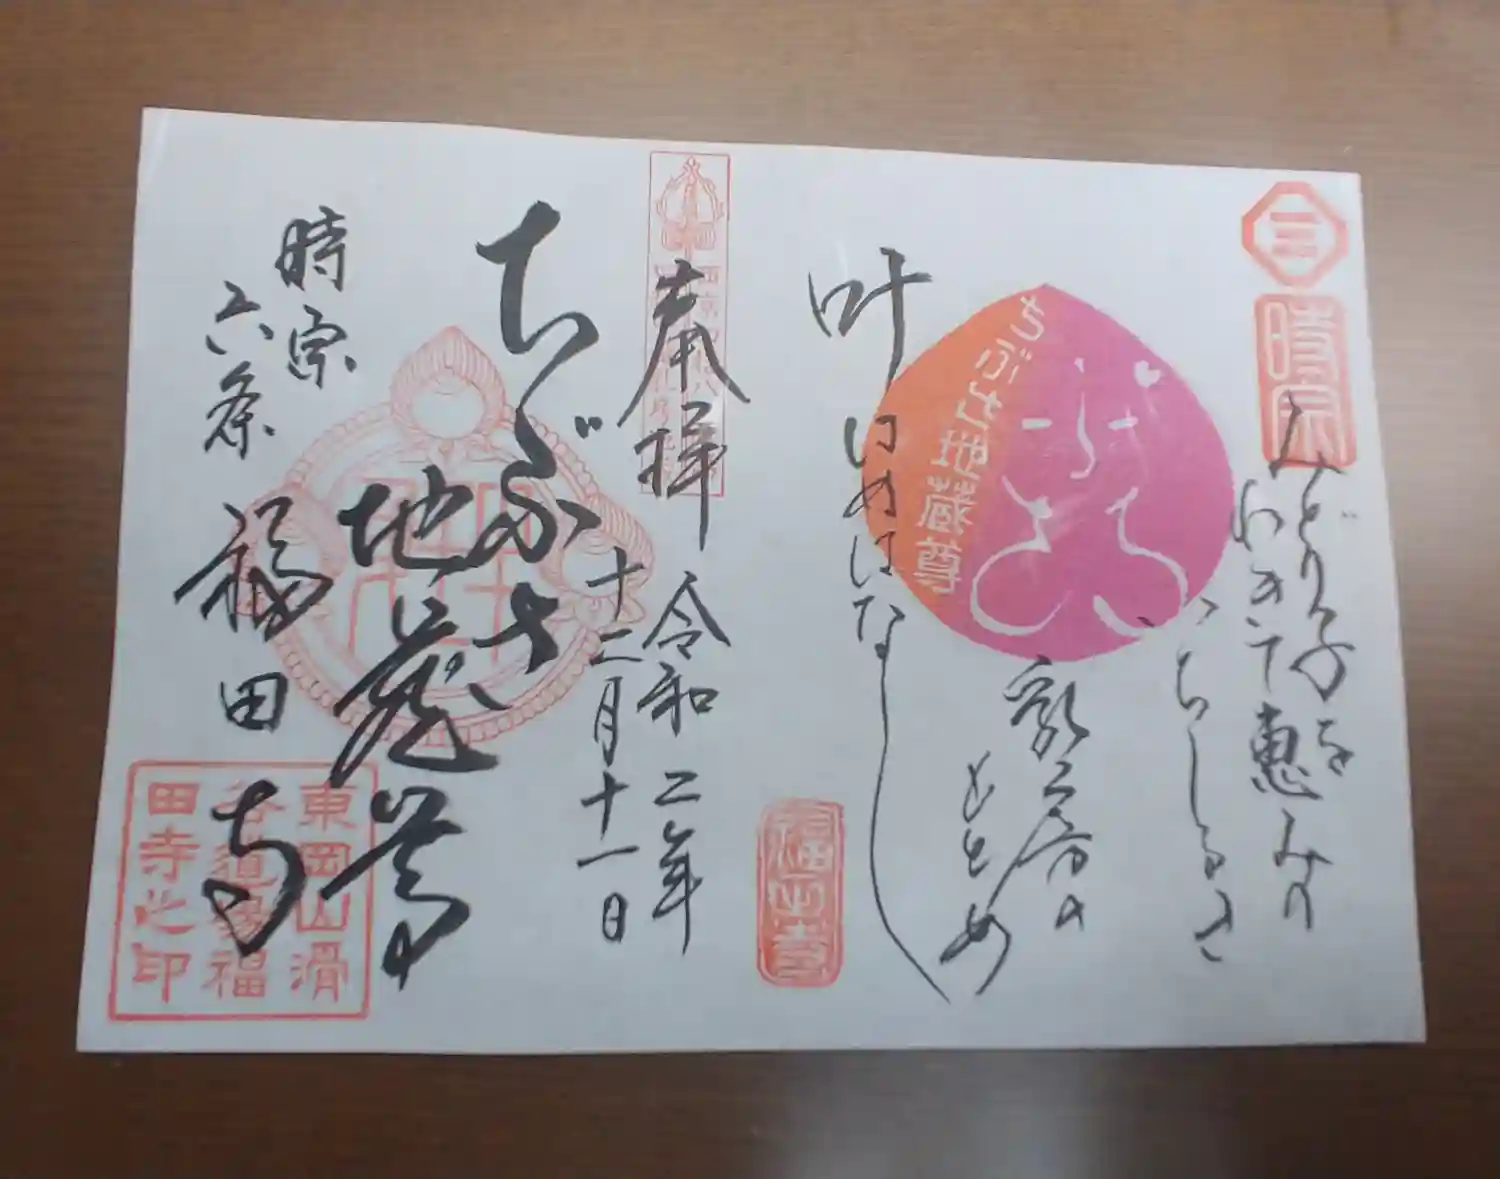 時宗
みどり子を
わきて恵みの
いちしるき
乳房の
もとめ
叶
はぬはなし
ちぶさ地蔵尊
福田寺
奉拝
令和二年
十二月十一日
ちぶさ
地蔵尊
時宗
六条
福田寺
東岡山滑
谷道場福
田寺之印